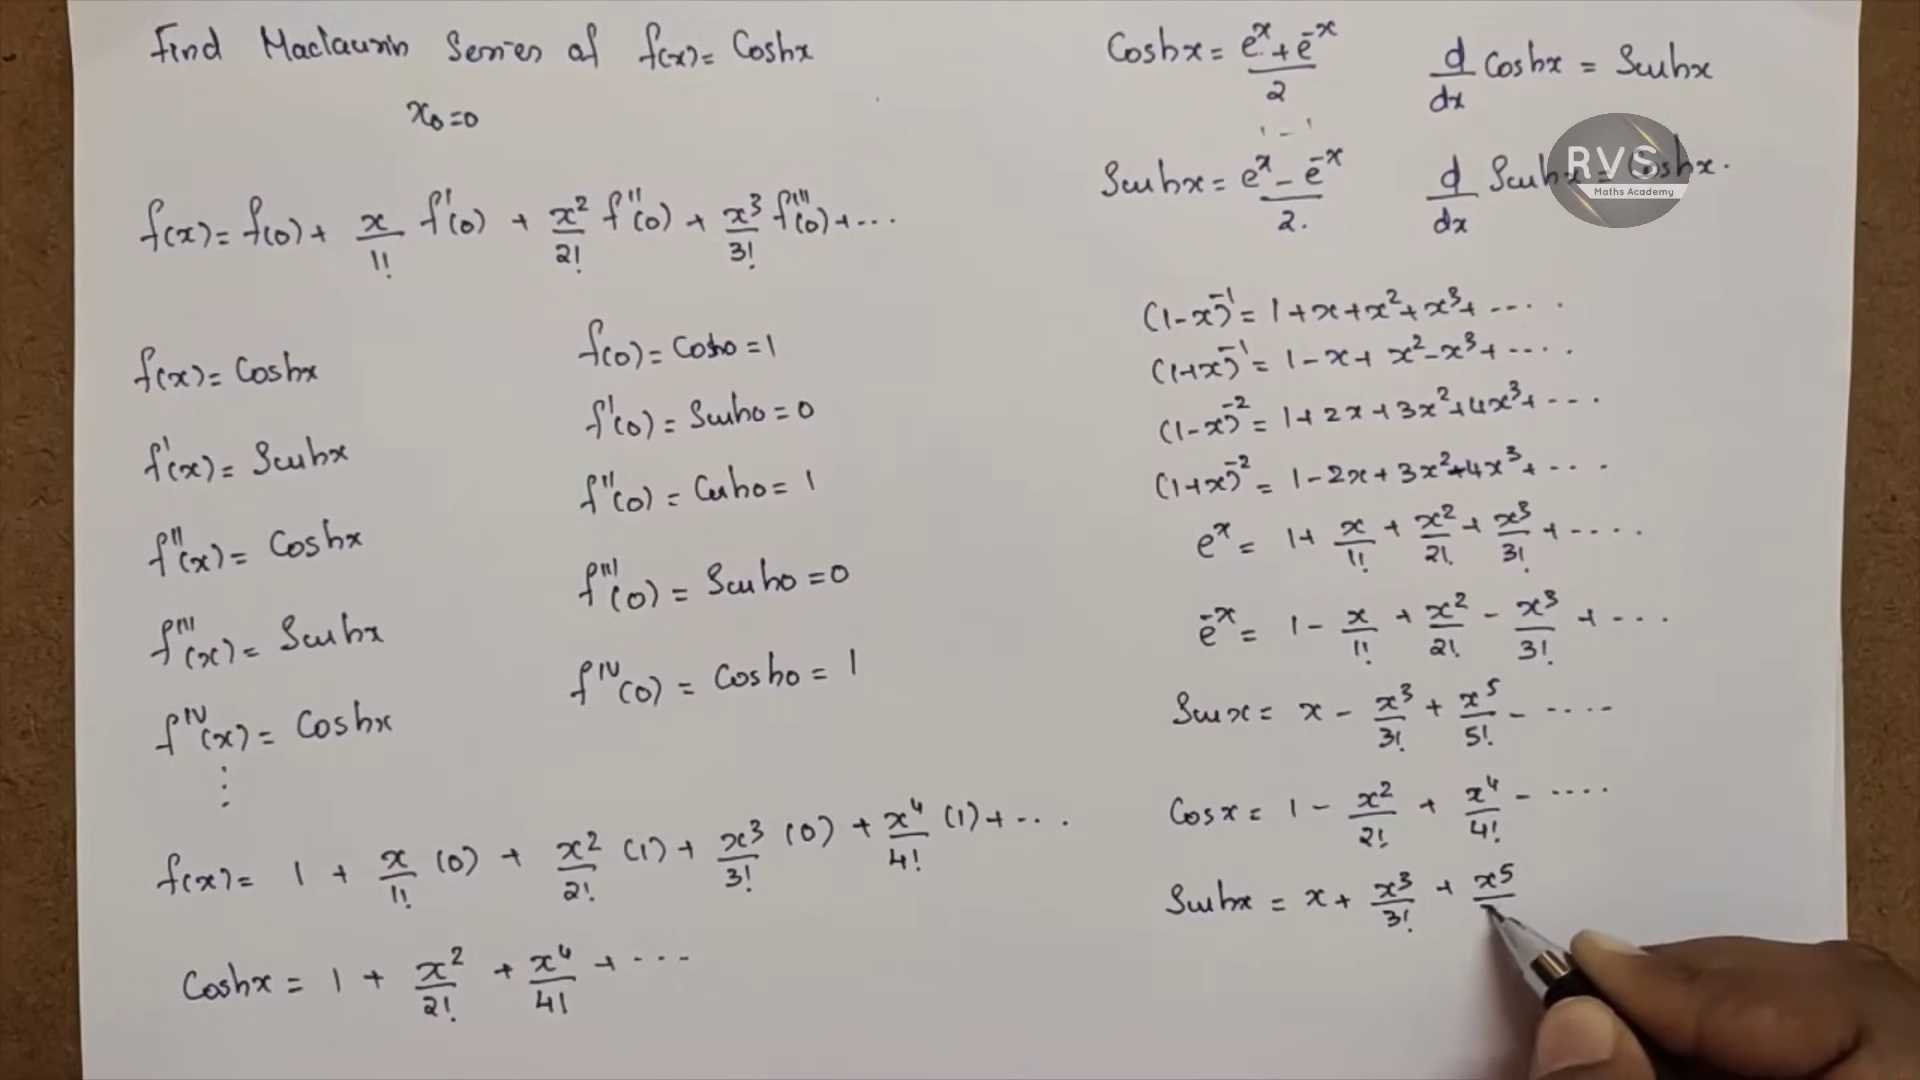 Find Maclaurin Series of f(x) = Coshx
x₀=0
f(x) = f(0) + x/1! f'(0) + x²/2! f''(0) + x³/3! f'''(0) + ...
f(x) = Coshx
f'(x) = Sinhx
f''(x) = Coshx
f'''(x) = Sinhx
fᴵⱽ(x) = Coshx
⋮
f(0) = Cosh0 = 1
f'(0) = Sinh0 = 0
f''(0) = Cosh0 = 1
f'''(0) = Sinh0 = 0
fᴵⱽ(0) = Cosh0 = 1
f(x) = 1 + x/1! (0) + x²/2! (1) + x³/3! (0) + x⁴/4! (1) + ...
Coshx = 1 + x²/2! + x⁴/4! + ...
Coshx = (eˣ + e⁻ˣ)/2
d/dx Coshx = Sinhx
Sinhx = (eˣ - e⁻ˣ)/2.
d/dx Sinhx = Coshx.
RVS
Maths Academy
(1-x)⁻¹ = 1 + x + x² + x³ + ....
(1+x)⁻¹ = 1 - x + x² - x³ + ....
(1-x)⁻² = 1 + 2x + 3x² + 4x³ + ...
(1+x)⁻² = 1 - 2x + 3x² - 4x³ + ....
eˣ = 1 + x/1! + x²/2! + x³/3! + ....
e⁻ˣ = 1 - x/1! + x²/2! - x³/3! + ....
Sinx = x - x³/3! + x⁵/5! - ....
Cosx = 1 - x²/2! + x⁴/4! - ....
Sinhx = x + x³/3! + x⁵